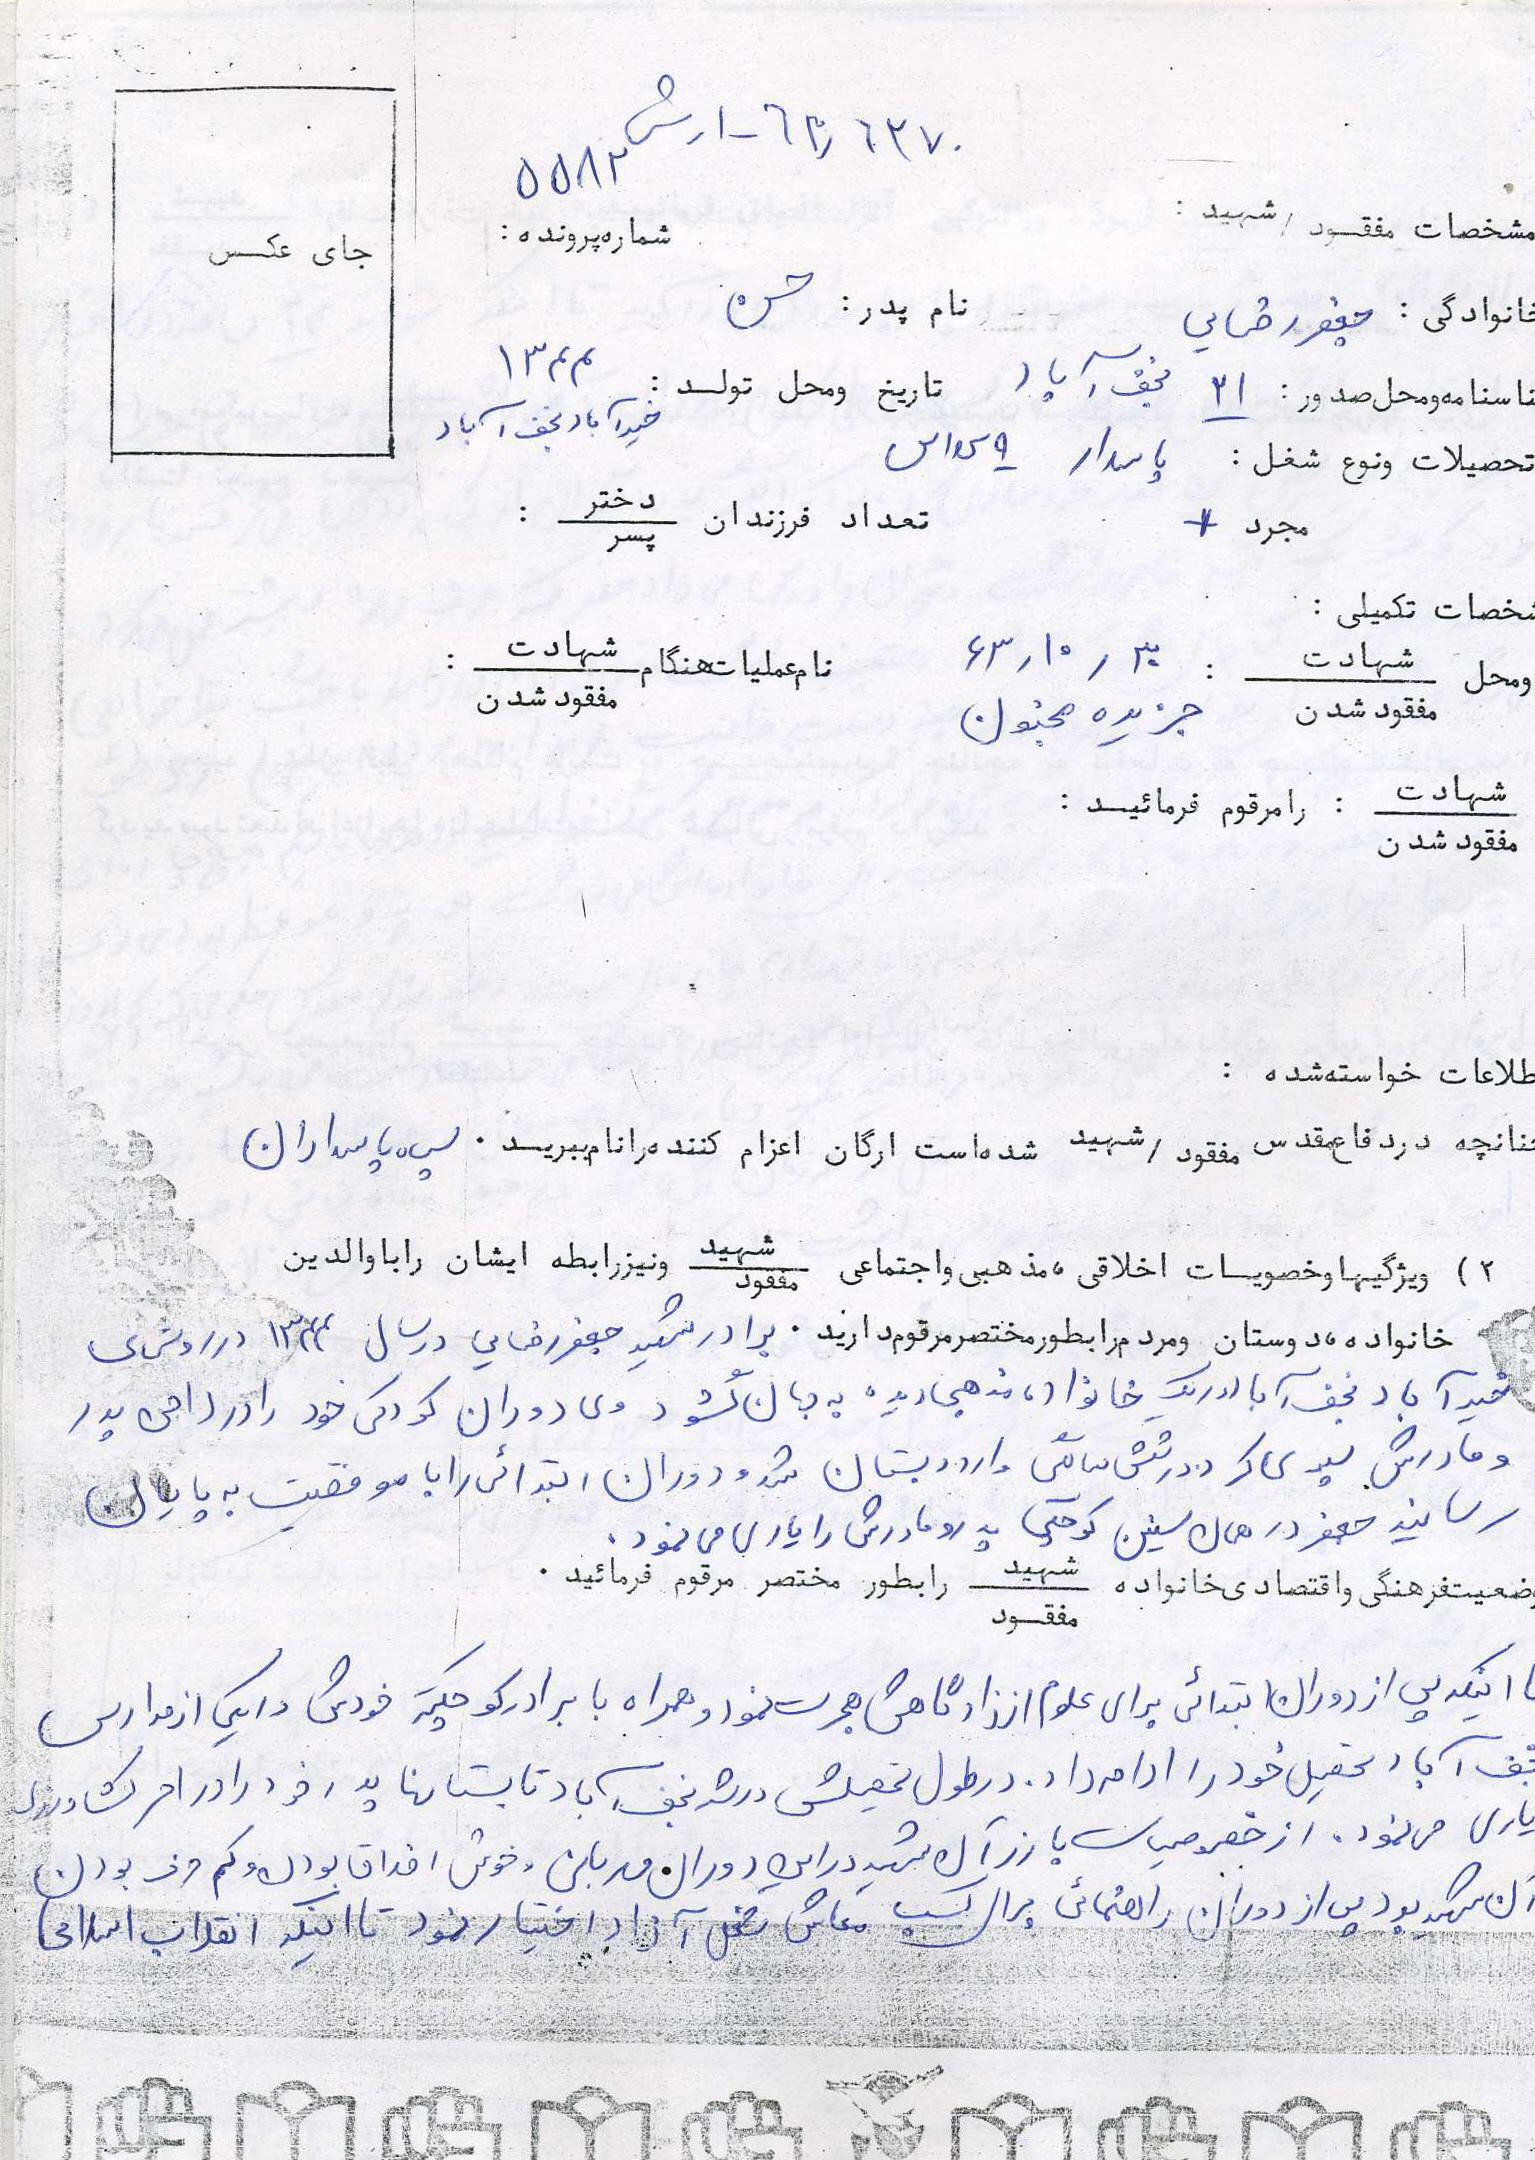 ۵۵۸۲
مشخصات مفقود / شهید :
شماره پرونده :
جای عکس
خانوادگی : جعفر رضایی
نام پدر :
ناسنامه ومحل صدور : ۲۱ نجف آباد
تاریخ ومحل تولد : ۱۳۴۴
خیرآباد نجف آباد
تحصیلات ونوع شغل : پاسدار
مجرد +
تعداد فرزندان دختر / پسر :
شخصات تکمیلی :
ومحل شهادت / مفقود شدن : ۳۰ ر ۱۰ ر ۶۳
جزیره مجنون
نام عملیات هنگام شهادت / مفقود شدن :
شهادت / مفقود شدن : را مرقوم فرمائید :
طلاعات خواسته شده :
چنانچه در دفاع مقدس مفقود / شهید شده است ارگان اعزام کننده را نام ببرید . سپاه پاسداران
۲ ) ویژگیها و خصویسات اخلاقی ، مذهبی و اجتماعی شهید / مفقود ونیز رابطه ایشان را با والدین
خانواده ، دوستان ومردم را بطور مختصر مرقوم دارید . برادر شهید جعفر رضایی در سال ۱۳۴۴ در روستای
خیرآباد نجف آباد در یک خانواده مذهبی دیده به جهان گشود وی دوران کودکی خود را در دامن پدر
و مادرش سپری کرد در شش سالگی وارد دبستان شد و دوران ابتدائی را با موفقیت به پایان
رسانید جعفر در همان سنین کوچکی پدر و مادرش را یاری می نمود .
وضعیت فرهنگی و اقتصادی خانواده شهید / مفقود را بطور مختصر مرقوم فرمائید .
تا اینکه پس از دوران ابتدائی برای علوم از زادگاهش هجرت نمود و همراه با برادر کوچکتر خودش در یکی از مدارس
نجف آباد تحصیل خود را ادامه داد . در طول تحصیلش در شهر نجف آباد تابستانها پدر خود را در امر کشاورزی
یاری می نمود . از خصوصیات بارز آن شهید در این دوران مهربان و خوش اخلاق بودن و کم حرف بودن
آن شهید بود پس از دوران راهنمائی برای کسب معاش شغل آزاد اختیار نمود تا اینکه انقلاب اسلامی